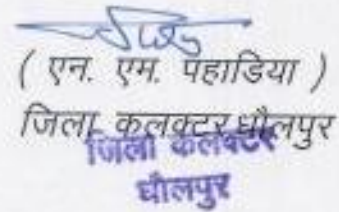 ( एन. एम. पहाडिया )
जिला कलक्टर धौलपुर
जिला कलक्टर
धौलपुर